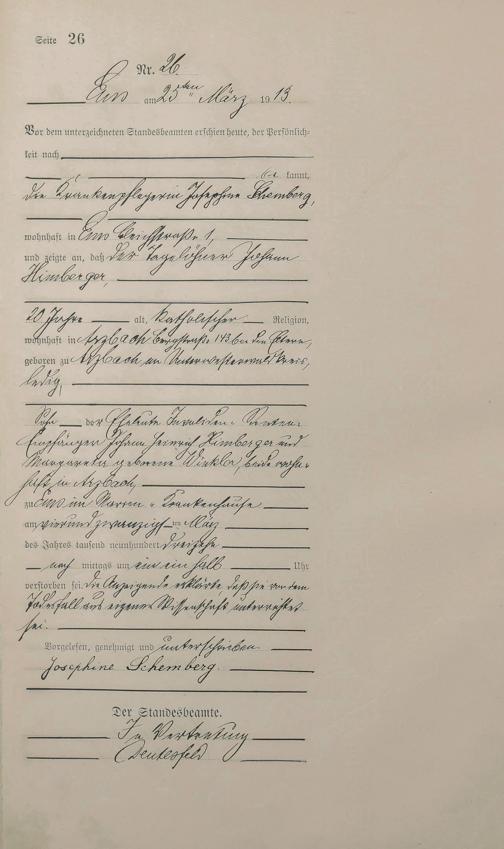 Seite 26
Nr. 26.
Ems am 25ten März 1913.
Vor dem unterzeichneten Standesbeamten erschien heute, der Persönlich-
keit nach
be kannt,
die Krankenpflegerin Josephine Schemberg,
wohnhaft in Ems Bleichstraße 1,
und zeigte an, daß der Tagelöhner Johann
Himberger,
20 Jahre alt, katholischer Religion,
wohnhaft in Arzbach Bergstraße 143 bei den Eltern,
geboren zu Arzbach im Unterwesterwaldkreis,
ledig,
Sohn der Eheleute Invaliden-Renten-
Empfänger Johann Heinrich Himberger und
Margareta geborene Winkler, beide wohn-
haft in Arzbach,
zu Ems im Marien-Krankenhause
am vierundzwanzigsten März
des Jahres tausend neunhundert dreizehn
nach mittags um ein ein halb Uhr
verstorben sei. Die Anzeigende erklärte, daß sie von dem
Todesfall aus eigener Wissenschaft unterrichtet
sei.
Vorgelesen, genehmigt und unterschrieben
Josephine Schemberg.
Der Standesbeamte.
In Vertretung